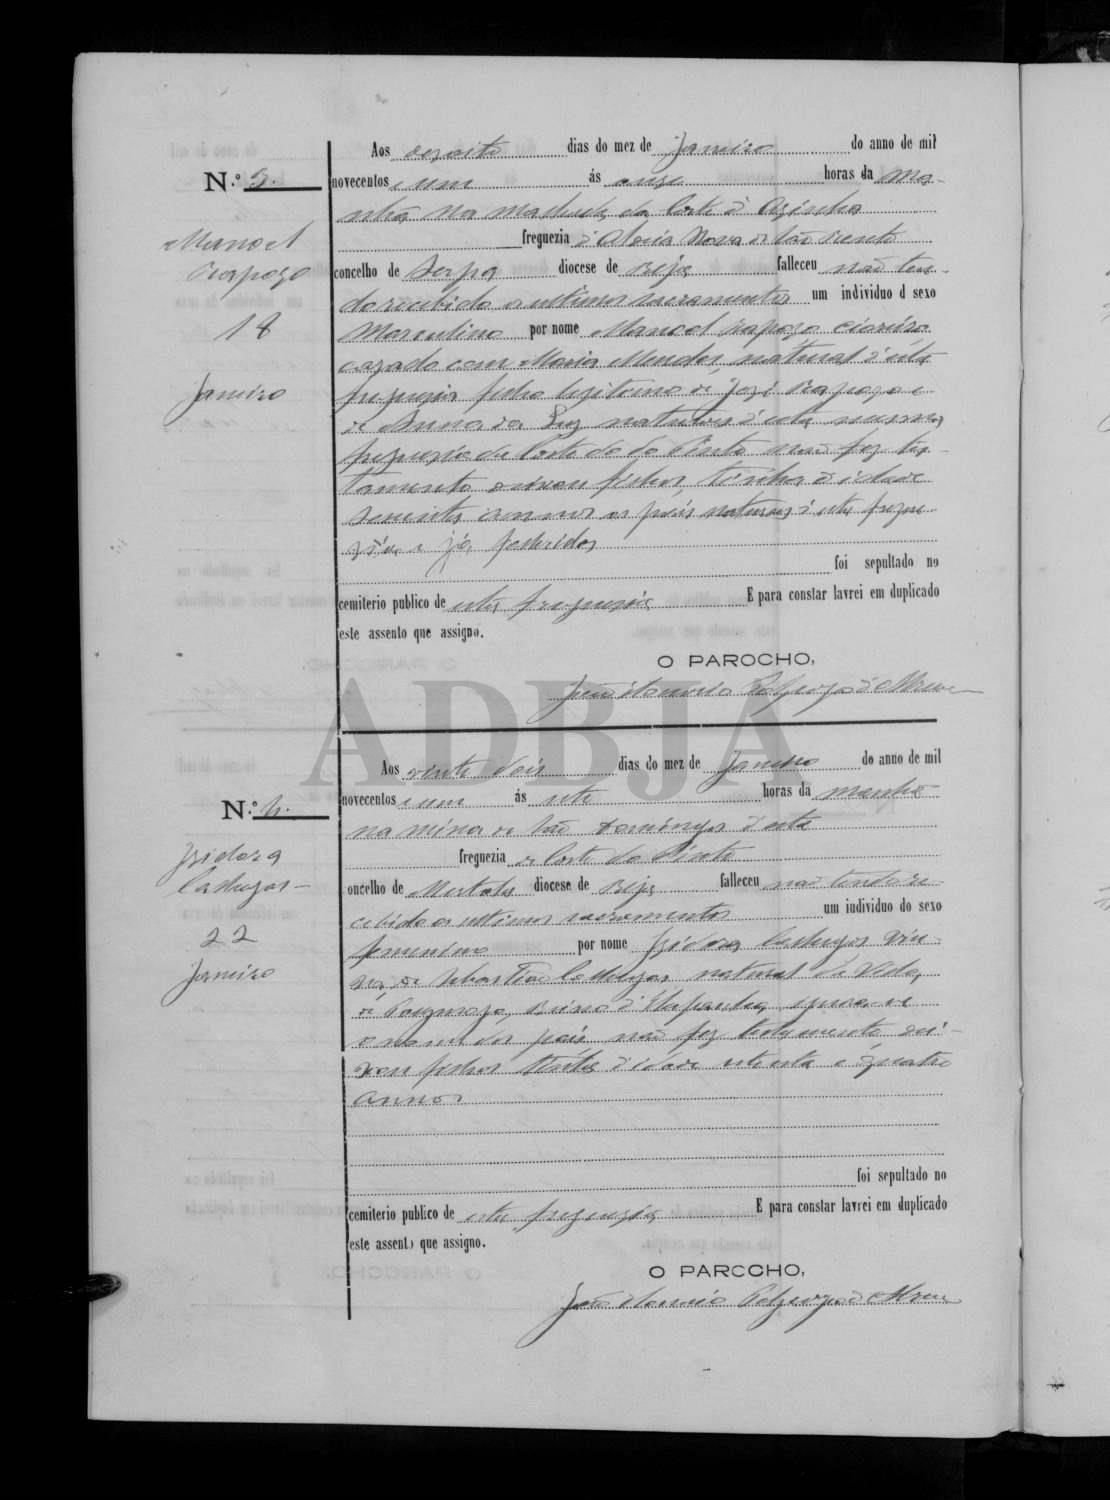 N.º 3.
Manoel
Rapozo
18
Janeiro
Aos dezoito dias do mez de Janeiro do anno de mil
novecentos e um ás onze horas da ma-
nhã na da Corte d' Azinha
freguezia d' Aldeia Nova de São Bento
concelho de Serpa diocese de Beja falleceu não ten-
do recebido os ultimos sacramentos um individuo d sexo
masculino por nome Manoel Rapozo
cazado com Maria Mendes, natural d'esta
freguezia filho legitimo de José Rapozo e
de Anna da Luz naturaes d'esta mesma
freguezia de Corte do do Pinto não fez tes-
tamento deixou filhos, tinha d'idade
sessenta annos os pais naturaes d'esta fregue-
zia e já fallecidos
foi sepultado no
cemiterio publico de esta freguezia E para constar lavrei em duplicado
este assento que assigno.
O PAROCHO,
ADBJA
N.º 4.
Izidora
22
Janeiro
Aos vinte dois dias do mez de Janeiro do anno de mil
novecentos e um ás sete horas da manhã
na mina de São Domingos d'esta
freguezia de Corte do Pinto
oncelho de Mertola diocese de Beja falleceu não tendo re-
cebido os ultimos sacramentos um individuo do sexo
femenino por nome Izidora viu-
va, de Sebastião natural de
de Reino d'Hespanha, ignora-se
o nome dos pais não fez testamento dei-
xou filhos tinha d'idade setenta e quatro
annos
foi sepultado no
cemiterio publico de esta freguezia E para constar lavrei em duplicado
este assento que assigno.
O PARCCHO,